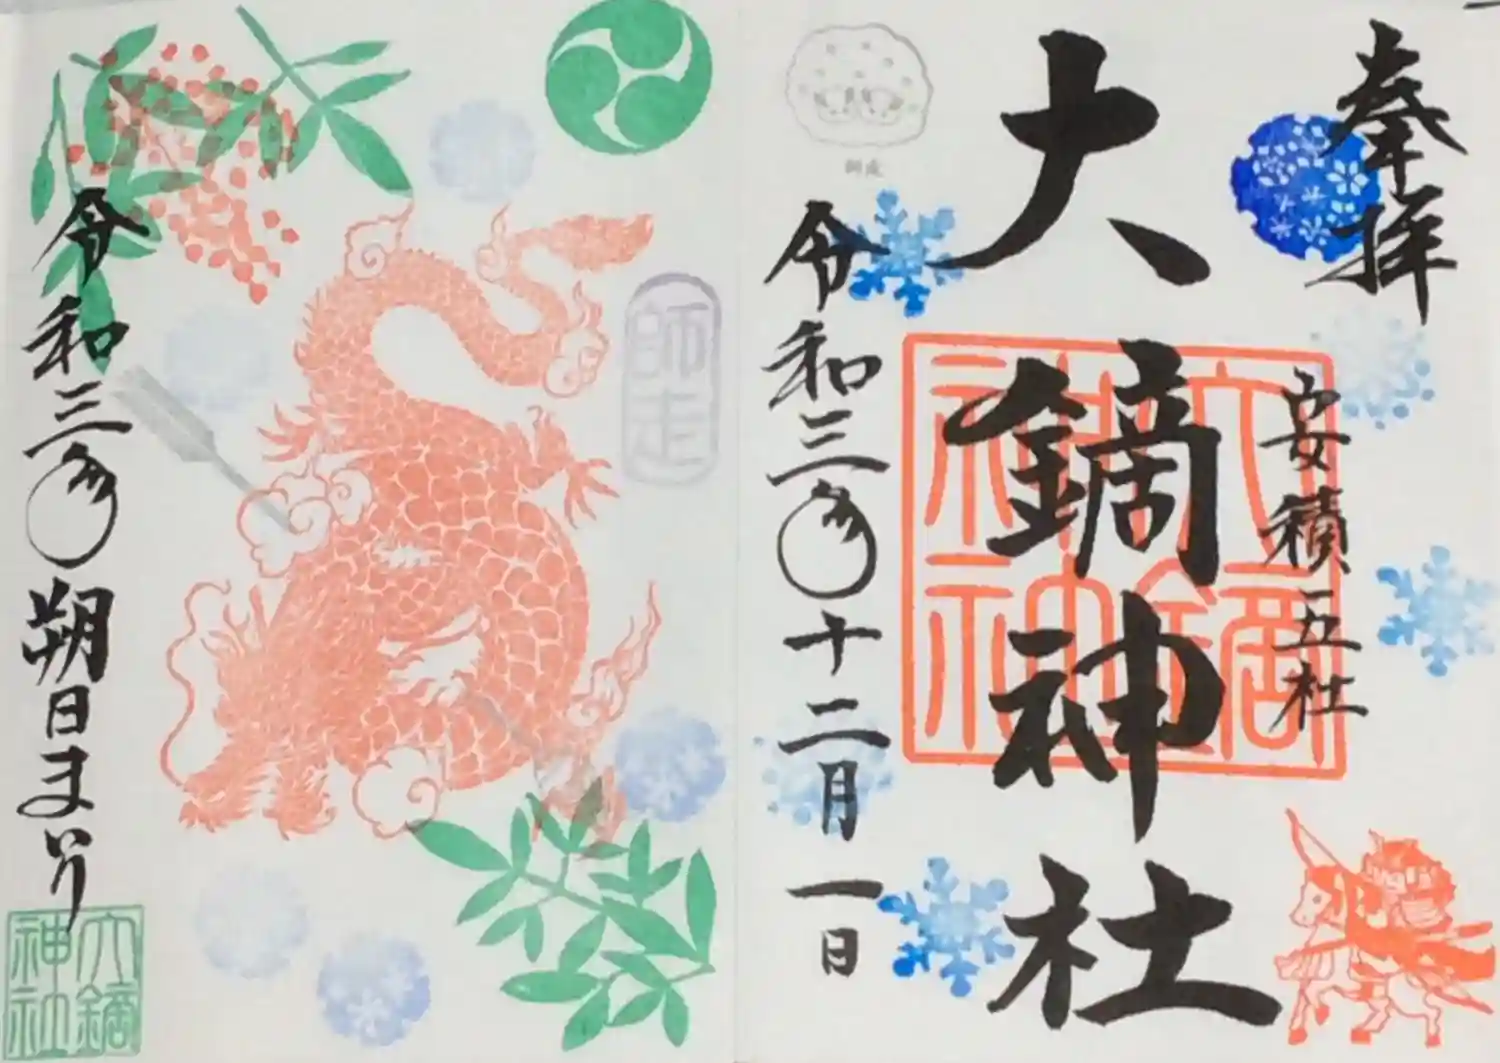 奉拝
安積五社
大鏑神社
大鏑神社
令和三年十二月一日
師走
師走
令和三年朔日まいり
大鏑神社